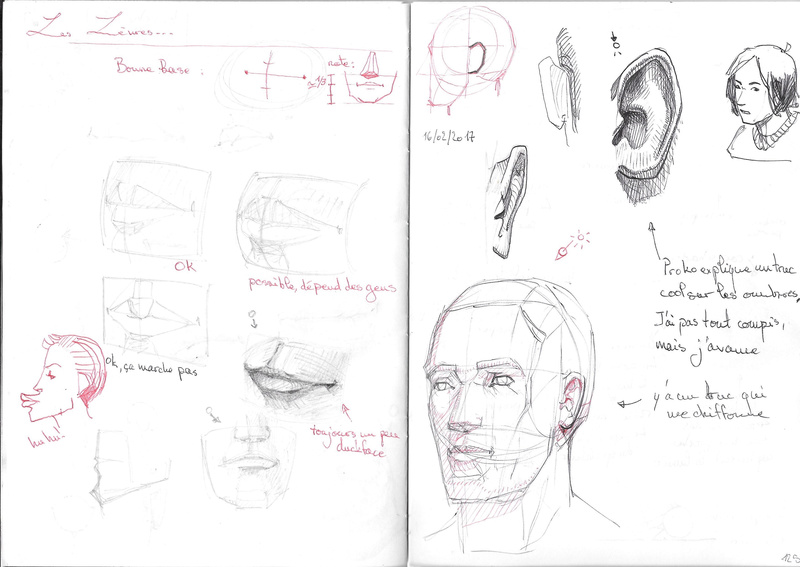 Les Lèvres...
Bonne base :
note :
≈ 1/3
OK
possible, dépend des gens
ok, ça marche pas
hu hu.
toujours un peu
duckface
16/02/2017
Proko explique un truc
cool sur les ombres,
J'ai pas tout compris,
mais j'avance
y a un truc qui
me chiffonne
123